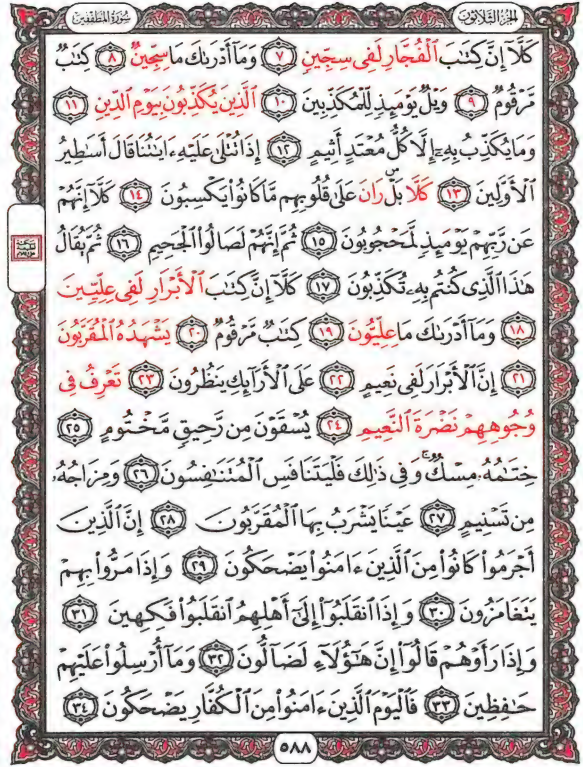 الجزء الثلاثون
سورة المطففين
كَلَّآ إِنَّ كِتَٰبَ ٱلْفُجَّارِ لَفِى سِجِّينٍ ٧ وَمَآ أَدْرَىٰكَ مَا سِجِّينٌ ٨ كِتَٰبٌ
مَّرْقُومٌ ٩ وَيْلٌ يَوْمَئِذٍ لِّلْمُكَذِّبِينَ ١٠ ٱلَّذِينَ يُكَذِّبُونَ بِيَوْمِ ٱلدِّينِ ١١
وَمَا يُكَذِّبُ بِهِۦٓ إِلَّا كُلُّ مُعْتَدٍ أَثِيمٍ ١٢ إِذَا تُتْلَىٰ عَلَيْهِ ءَايَٰتُنَا قَالَ أَسَٰطِيرُ
ٱلْأَوَّلِينَ ١٣ كَلَّا بَلْ رَانَ عَلَىٰ قُلُوبِهِم مَّا كَانُوا۟ يَكْسِبُونَ ١٤ كَلَّآ إِنَّهُمْ
عَن رَّبِّهِمْ يَوْمَئِذٍ لَّمَحْجُوبُونَ ١٥ ثُمَّ إِنَّهُمْ لَصَالُوا۟ ٱلْجَحِيمِ ١٦ ثُمَّ يُقَالُ
هَٰذَا ٱلَّذِى كُنتُم بِهِۦ تُكَذِّبُونَ ١٧ كَلَّآ إِنَّ كِتَٰبَ ٱلْأَبْرَارِ لَفِى عِلِّيِّينَ
١٨ وَمَآ أَدْرَىٰكَ مَا عِلِّيُّونَ ١٩ كِتَٰبٌ مَّرْقُومٌ ٢٠ يَشْهَدُهُ ٱلْمُقَرَّبُونَ
٢١ إِنَّ ٱلْأَبْرَارَ لَفِى نَعِيمٍ ٢٢ عَلَى ٱلْأَرَآئِكِ يَنظُرُونَ ٢٣ تَعْرِفُ فِى
وُجُوهِهِمْ نَضْرَةَ ٱلنَّعِيمِ ٢٤ يُسْقَوْنَ مِن رَّحِيقٍ مَّخْتُومٍ ٢٥
خِتَٰمُهُۥ مِسْكٌ ۚ وَفِى ذَٰلِكَ فَلْيَتَنَافَسِ ٱلْمُتَنَٰفِسُونَ ٢٦ وَمِزَاجُهُۥ
مِن تَسْنِيمٍ ٢٧ عَيْنًا يَشْرَبُ بِهَا ٱلْمُقَرَّبُونَ ٢٨ إِنَّ ٱلَّذِينَ
أَجْرَمُوا۟ كَانُوا۟ مِنَ ٱلَّذِينَ ءَامَنُوا۟ يَضْحَكُونَ ٢٩ وَإِذَا مَرُّوا۟ بِهِمْ
يَتَغَامَزُونَ ٣٠ وَإِذَا ٱنقَلَبُوٓا۟ إِلَىٰٓ أَهْلِهِمُ ٱنقَلَبُوا۟ فَكِهِينَ ٣١
وَإِذَا رَأَوْهُمْ قَالُوٓا۟ إِنَّ هَٰٓؤُلَآءِ لَضَآلُّونَ ٣٢ وَمَآ أُرْسِلُوا۟ عَلَيْهِمْ
حَٰفِظِينَ ٣٣ فَٱلْيَوْمَ ٱلَّذِينَ ءَامَنُوا۟ مِنَ ٱلْكُفَّارِ يَضْحَكُونَ ٣٤
٥٨٨